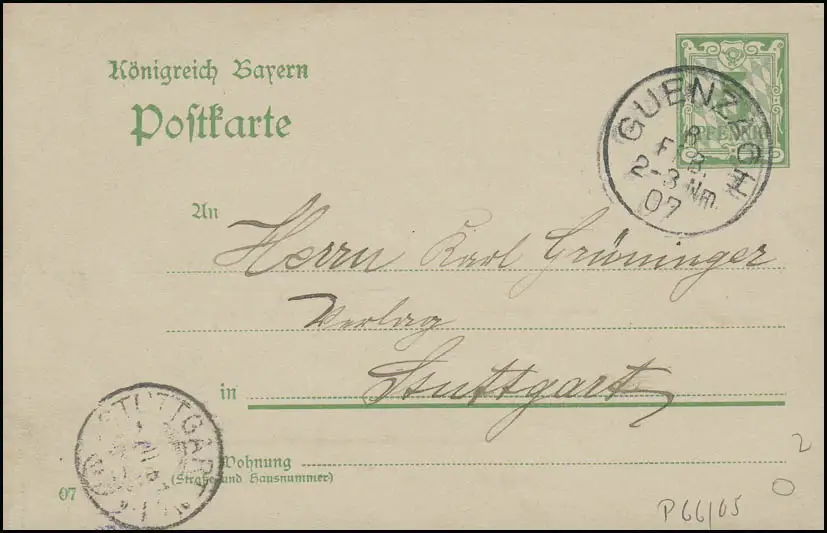 Königreich Bayern
Postkarte
PFENNIG
GUENZACH
8
FEB.
2-3 Nm.
07
An
Herrn Karl Grüninger
Verlag
in Stuttgart
STUTTGART
Wohnung
(Straße und Hausnummer)
07
2
P66/05